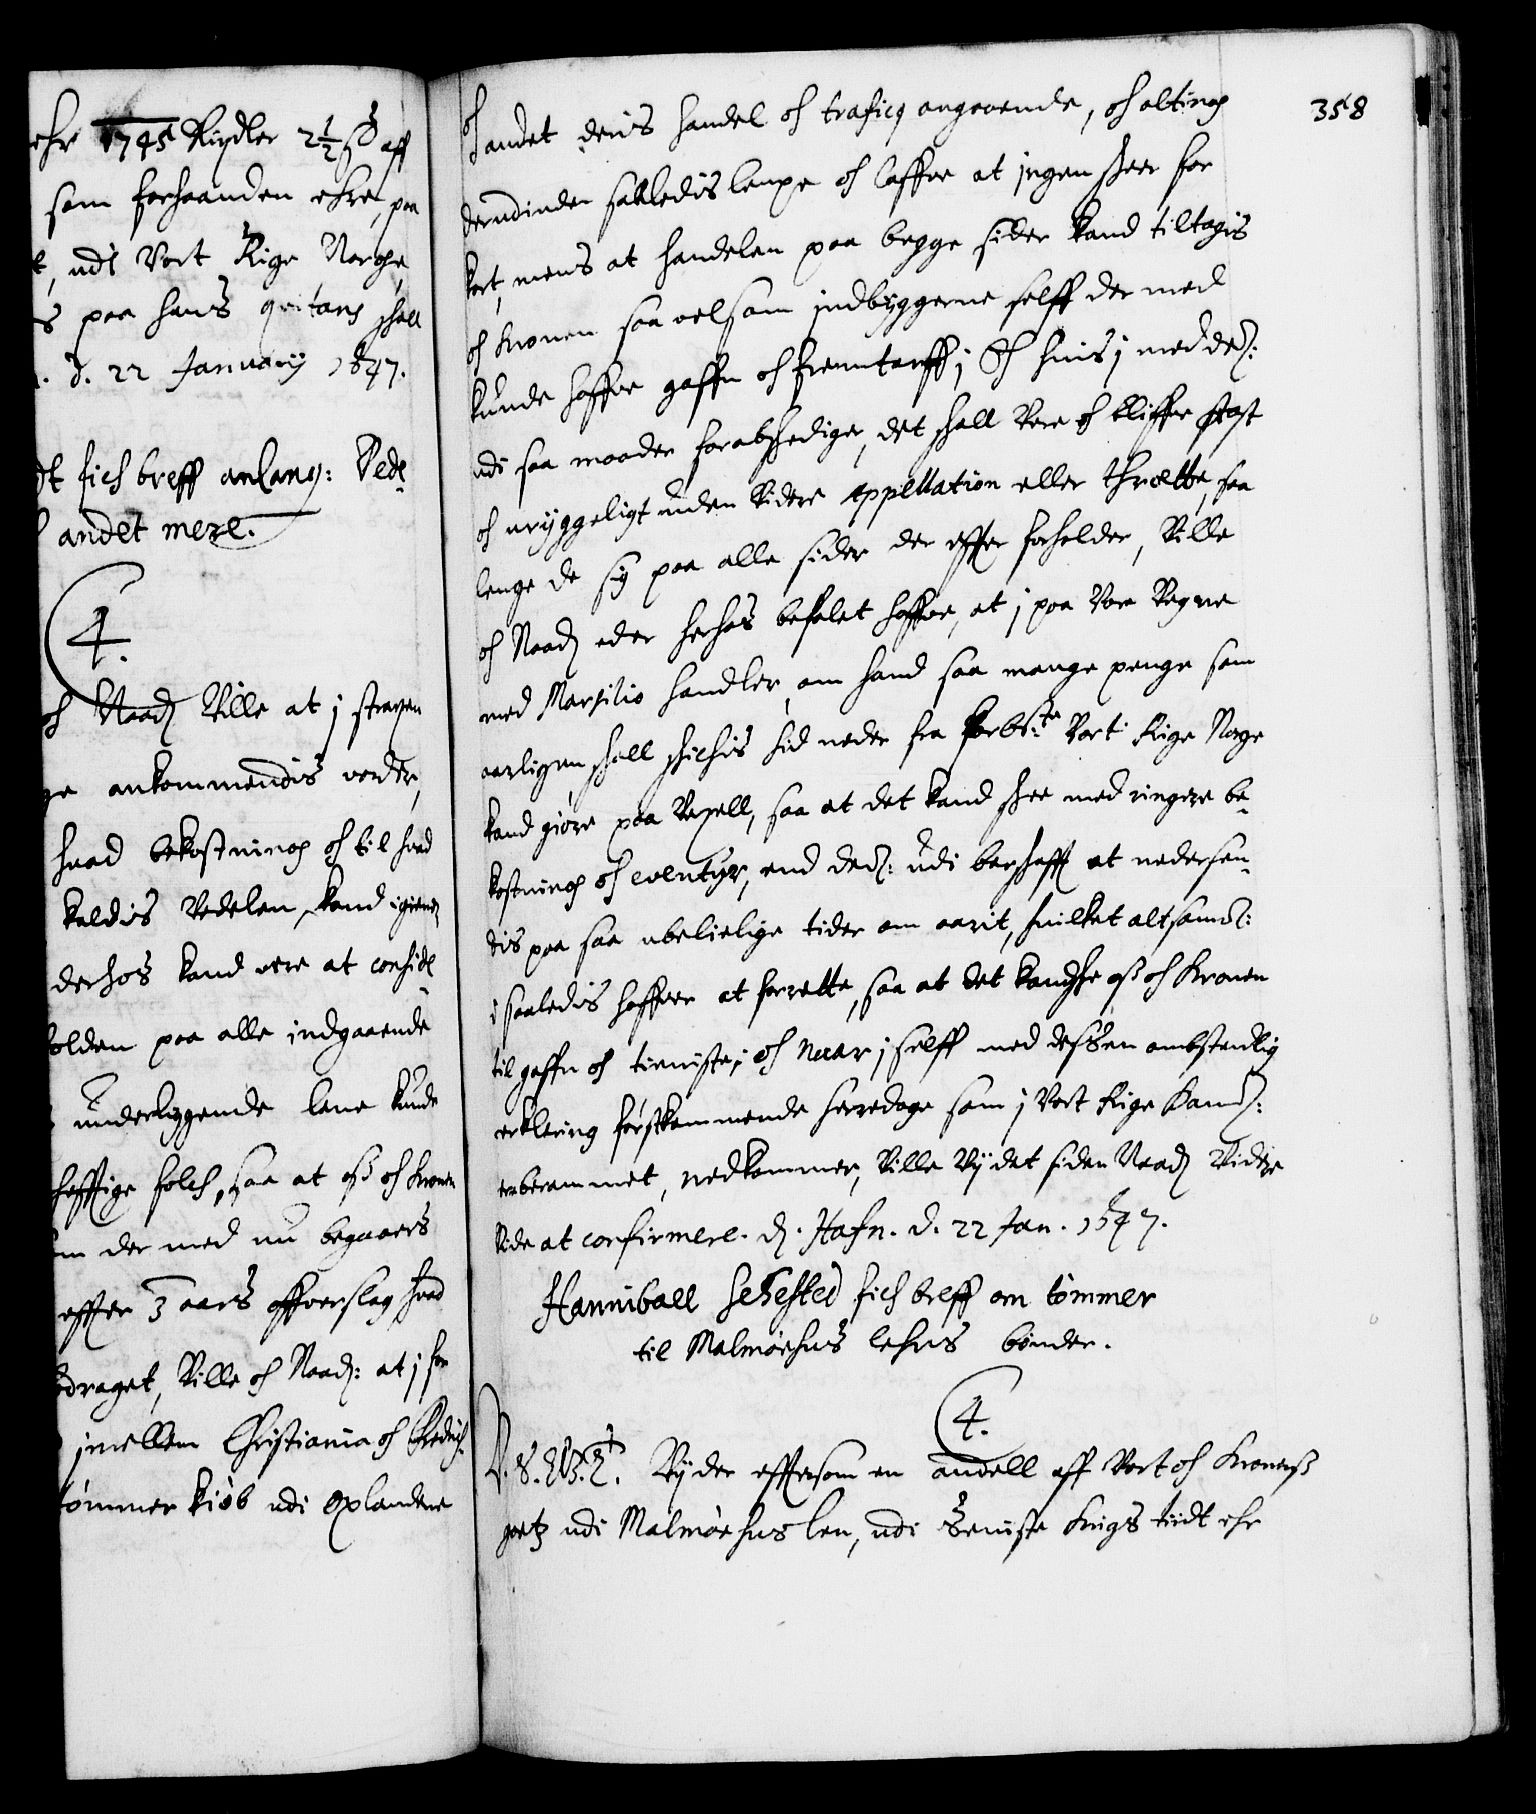 ehr 1745 Rixdlr 2½ ß aff
som forhaanden ehre, paa
t, udi Vort Rige Norge
s paa hans qvitans skall
d. 22 Januarij 1647.
dt fich breff anlang: Vede
andet mere.
4.
och Naad Ville at j straxen
ge ankommendis vorder,
huad bekostning och til huad
kaldis Vedelen kand
derhos kand vere at conside
tolden paa alle indgaaende
underliggende lene kunde
hefftige folch, saa at oß och Kronen
om der med nu begaaers
effter 3 aars offverslag huad
draget, Ville och Naad: at j for
imellem Christiania och Fredrich
tømmer kiøb udi Oplandene
358
och andet deris handel och trafiq angaaende, och alting
derudinden saaledis lempe och laffve at ingen skeer for
kort, mens at handelen paa begge sider kand tiltagis
och Kronen saa velsom indbyggerne selff der med
kunde haffve gaffn och fremtarff; Och huis j med dem:
udi saa maader forabschediger, det skall Vere och bliffve fast
och uryggeligt uden Videre appellation eller thrætte, saa
lenge de sig paa alle sider der effter forholder, Ville
och Naad eder herhos befalet haffve, at j paa Vore Vegne
med Marsilio handler, om hand saa mange penge som
aarligen skall skichis hid neder fra forbte Vort Rige Norge
kand giøre paa Vexell, saa at det kand skee med ringere be-
kostning och eventyr, end dem: udi barskafft at nedersen-
dis paa saa ubelielige tider om aarit, huilket altsam:
j saaledis haffver at forrette, saa at det kand skee oß och Kronen
til gaffn och tieniste, och naar j selff med dessen ombstendlig
erklering førstkommende herredage som j Vort Rige Danm:
er berammet, nedkommer, Ville Vij det siden Naad Videre
Vide at confirmere. d. Hafn. d. 22 Jan. 1647.
Hanniball Sehested fich breff om tømmer
til Malmøehus lehns bønder.
4.
Vij der effttersom en andell aff Vort och Kronens
gotz udi Malmøehus len, udi seniste Krigs tiidt ehr